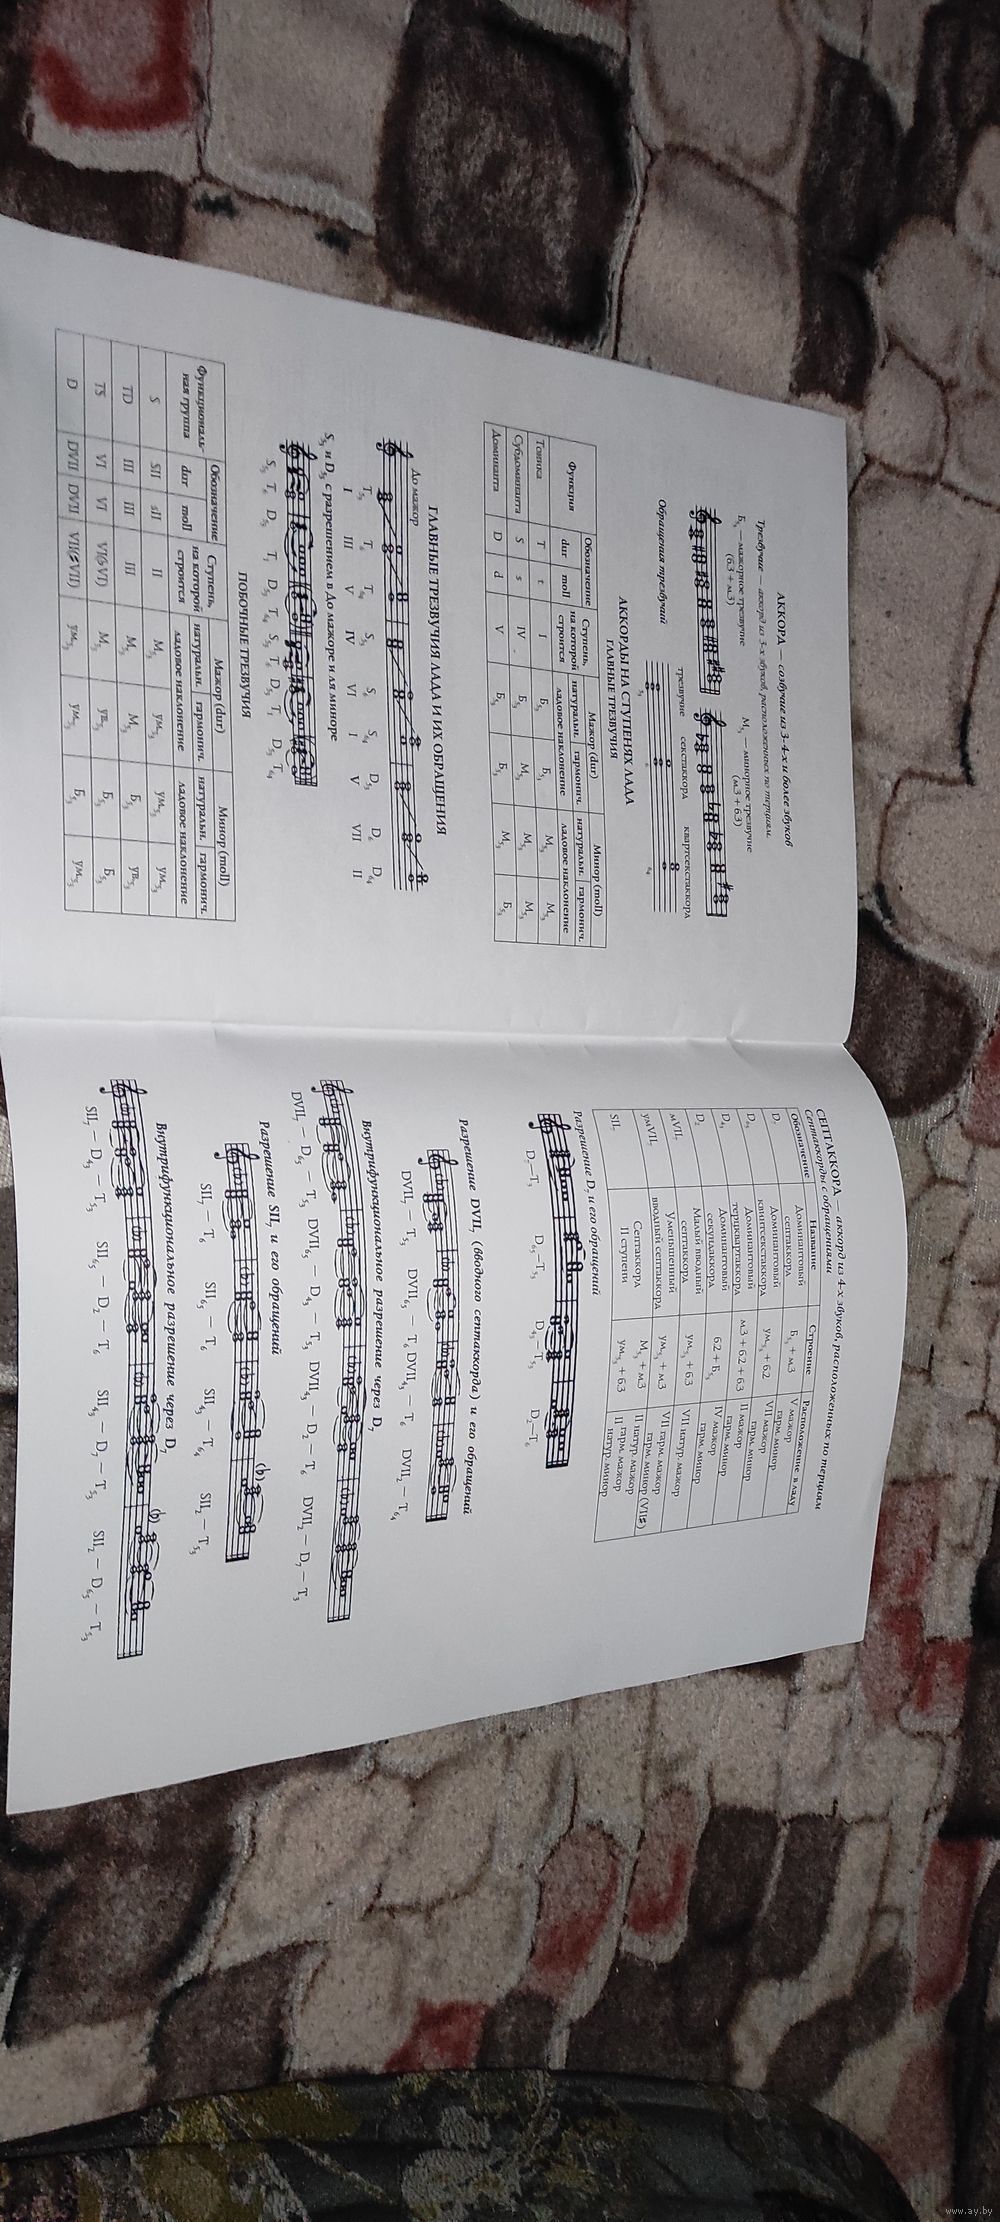 АККОРД — созвучие из 3-4-х и более звуков
Трезвучие — аккорд из 3-х звуков, расположенных по терциям.
Б₅₃ — мажорное трезвучие
(б3 + м3)
М₅₃ — минорное трезвучие
(м3 + б3)
Обращения трезвучий
трезвучие секстаккорд квартсекстаккорд
5/3 6 6/4
АККОРДЫ НА СТУПЕНЯХ ЛАДА
ГЛАВНЫЕ ТРЕЗВУЧИЯ
Функция Обозначение Ступень, на которой строится Мажор (dur) Минор (moll)
dur moll натуральн. гармонич. натуральн. гармонич.
ладовое наклонение ладовое наклонение
Тоника T t I Б₅₃ Б₅₃ М₅₃ М₅₃
Субдоминанта S s IV Б₅₃ М₅₃ М₅₃ М₅₃
Доминанта D d V Б₅₃ Б₅₃ М₅₃ Б₅₃
ГЛАВНЫЕ ТРЕЗВУЧИЯ ЛАДА И ИХ ОБРАЩЕНИЯ
До мажор
T₅₃ T₆ T₆₄ S₅₃ S₆ S₆₄ D₅₃ D₆ D₆₄
I III V IV VI I V VII II
S₅₃ и D₅₃ с разрешением в До мажоре и ля миноре
ПОБОЧНЫЕ ТРЕЗВУЧИЯ
Функциональ- Обозначение Ступень, на которой строится Мажор (dur) Минор (moll)
ная группа dur moll натуральн. гармонич. натуральн. гармонич.
ладовое наклонение ладовое наклонение
S SII sII II М₅₃ ум₅₃ ум₅₃ ум₅₃
TD III III III М₅₃ М₅₃ Б₅₃ ув₅₃
TS VI VI VI(♭VI) М₅₃ ув₅₃ Б₅₃ Б₅₃
D DVII DVII VII(♯VII) ум₅₃ ум₅₃ Б₅₃ ум₅₃
СЕПТАККОРД — аккорд из 4-х звуков, расположенных по терциям
Септаккорды с обращениями
Обозначение Название Строение Расположение в ладу
D₇ Доминантовый септаккорд Б₅₃ + м3 V мажор гарм. минор
D₆₅ Доминантовый квинтсекстаккорд ум₅₃ + б2 VII мажор гарм. минор
D₄₃ Доминантовый терцквартаккорд м3 + б2 + б3 II мажор гарм. минор
D₂ Доминантовый секундаккорд б2 + Б₅₃ IV мажор гарм. минор
мVII₇ Малый вводный септаккорд ум₅₃ + б3 VII натур. мажор
умVII₇ Уменьшенный вводный септаккорд ум₅₃ + м3 VII гарм. мажор гарм. минор (VII♯)
SII₇ Септаккорд II ступени М₅₃ + м3 II натур. мажор
ум₅₃ + б3 II гарм. мажор II натур. минор
Разрешение D₇ и его обращений
D₇–T₃ D₆₅–T₅₃ D₄₃–T₅₃ D₂–T₆
Разрешение DVII₇ (вводного септаккорда) и его обращений
DVII₇ – T₅₃ DVII₆₅ – T₆ DVII₄₃ – T₆ DVII₂ – T₆₄
Внутрифункциональное разрешение через D₇
DVII₇ – D₆₅ – T₅₃ DVII₆₅ – D₄₃ – T₅₃ DVII₄₃ – D₂ – T₆ DVII₂ – D₇ – T₃
Разрешение SII₇ и его обращений
SII₇ – T₆ SII₆₅ – T₆ SII₄₃ – T₆₄ SII₂ – T₅₃
Внутрифункциональное разрешение через D₇
SII₇ – D₄₃ – T₅₃ SII₆₅ – D₂ – T₆ SII₄₃ – D₇ – T₅₃ SII₂ – D₆₅ – T₅₃
www.ay.by